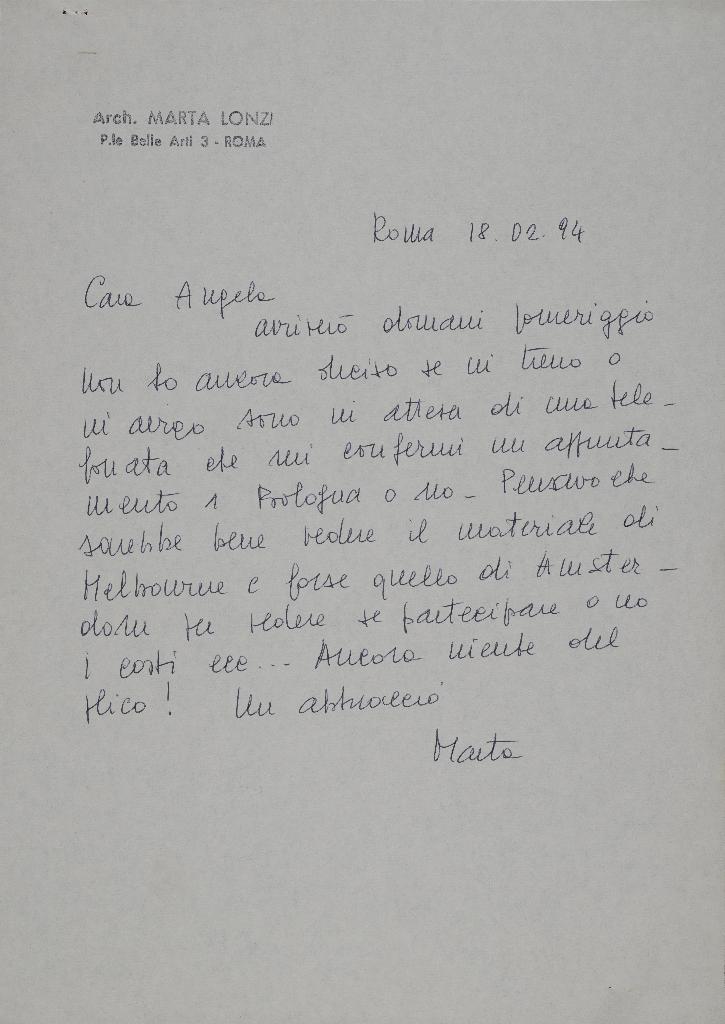 Arch. MARTA LONZI
P.le Belle Arti 3 - ROMA
Roma 18.02.94
Cara Angela
arriverò domani pomeriggio
non so ancora deciso se in treno o
in aereo sono in attesa di una tele-
fonata che mi confermi un appunta-
mento a Bologna o no - Pensavo che
sarebbe bene vedere il materiale di
Melbourne e forse quello di Amster-
dam per vedere se partecipare o no
i costi ecc... Ancora niente del
plico! Un abbraccio
Marta